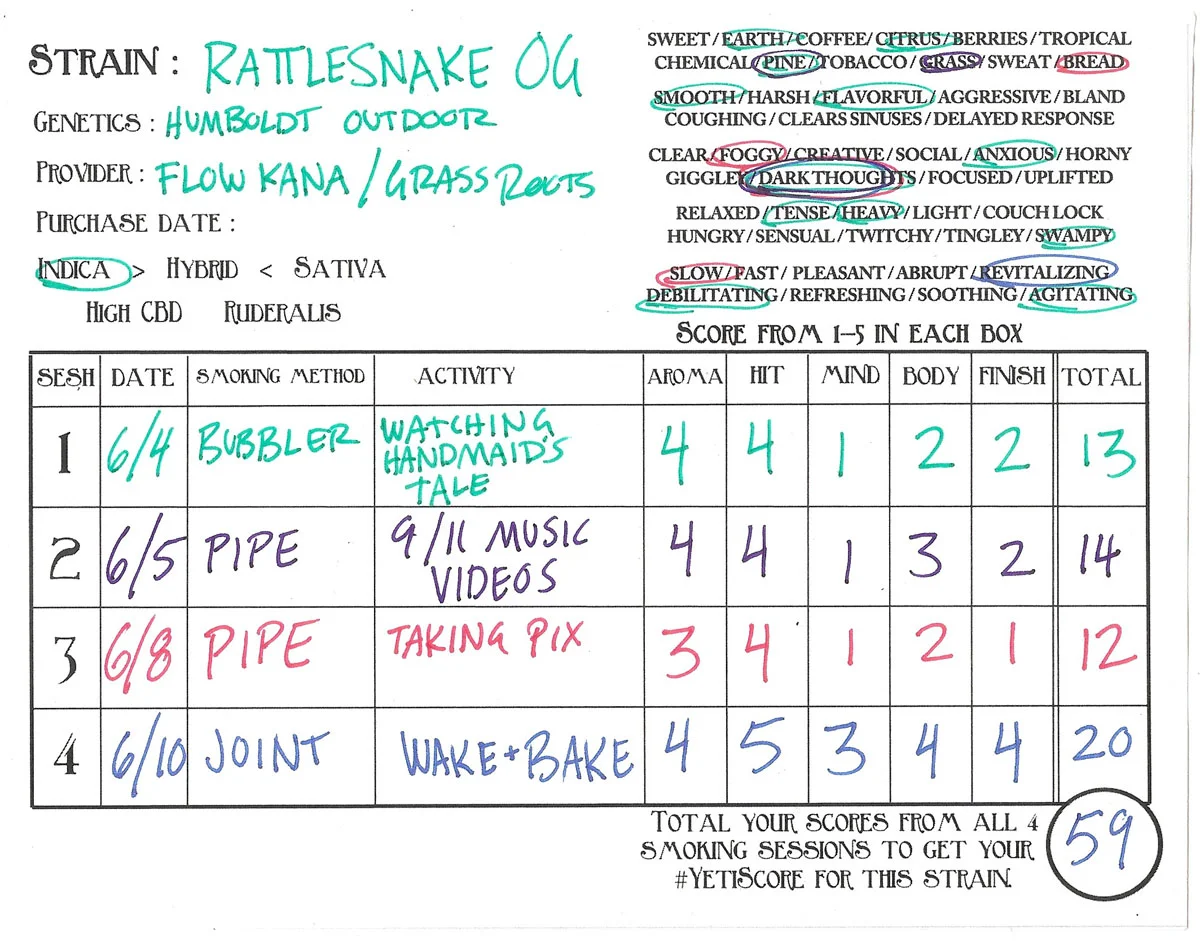 STRAIN : RATTLESNAKE OG
GENETICS : HUMBOLDT OUTDOOR
PROVIDER : FLOW KANA / GRASS ROOTS
PURCHASE DATE :
INDICA > HYBRID < SATIVA
HIGH CBD RUDERALIS
SWEET / EARTH / COFFEE / CITRUS / BERRIES / TROPICAL
CHEMICAL / PINE / TOBACCO / GRASS / SWEAT / BREAD
SMOOTH / HARSH / FLAVORFUL / AGGRESSIVE / BLAND
COUGHING / CLEARS SINUSES / DELAYED RESPONSE
CLEAR / FOGGY / CREATIVE / SOCIAL / ANXIOUS / HORNY
GIGGLEY / DARK THOUGHTS / FOCUSED / UPLIFTED
RELAXED / TENSE / HEAVY / LIGHT / COUCH LOCK
HUNGRY / SENSUAL / TWITCHY / TINGLEY / SWAMPY
SLOW / FAST / PLEASANT / ABRUPT / REVITALIZING
DEBILITATING / REFRESHING / SOOTHING / AGITATING
SCORE FROM 1–5 IN EACH BOX
SESH DATE SMOKING METHOD ACTIVITY AROMA HIT MIND BODY FINISH TOTAL
1 6/4 BUBBLER WATCHING HANDMAID'S TALE 4 4 1 2 2 13
2 6/5 PIPE 9/11 MUSIC VIDEOS 4 4 1 3 2 14
3 6/8 PIPE TAKING PIX 3 4 1 2 1 12
4 6/10 JOINT WAKE + BAKE 4 5 3 4 4 20
TOTAL YOUR SCORES FROM ALL 4
SMOKING SESSIONS TO GET YOUR
#YETISCORE FOR THIS STRAIN.
59